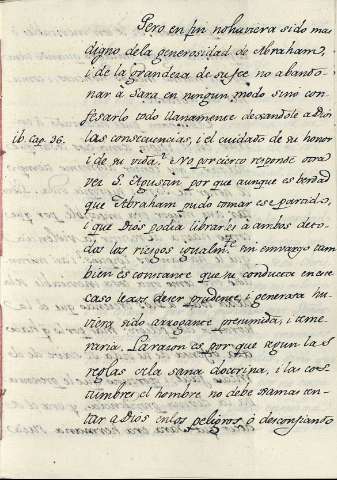 Pero en fin no huviera sido mas
digno de la generosidad de Abraham,
i de la grandeza de su fee no abando-
nar à Sara en ningun modo sino con-
fesarlo todo llanamente dexandole à Dios
ib. Cap. 36.
las consecuencias, i el cuidado de su honor
i de su vida? No por cierto responde otra
vez S. Agustin por que aunque es verdad
que Abraham pudo tomar ese partido,
i que Dios podia librar à ambos de to-
das los riesgos igualmte. sin embargo tam-
bien es constante que su conducta en ese
caso lexos de ser prudente, i generosa hu-
viera sido arrogante presumida, i teme-
raria. La razon es por que segun las
reglas de la sana doctrina, i las cos-
tumbres el hombre no debe jamas ten-
tar a Dios en los peligros, ò desconfiando